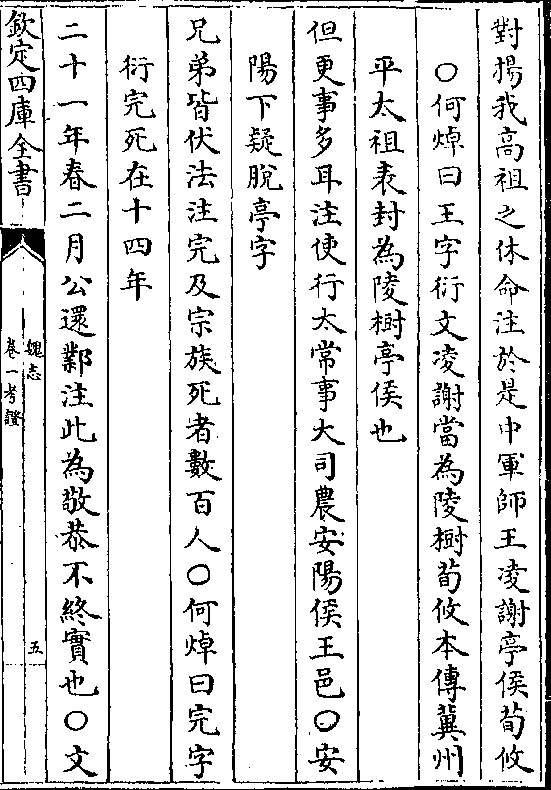 對揚我高祖之休命注於是中軍師王凌謝亭侯荀攸
〇何焯曰王字衍文凌謝當為陵樹荀攸本傳冀州
平太祖表封為陵樹亭侯也
但更事多耳注使行太常事大司農安陽侯王邑〇安
陽下疑脫亭字
兄弟皆伏法注完及宗族死者數百人〇何焯曰完字
衍完死在十四年
二十一年春二月公還鄴注此為敬恭不終實也〇文
欽定四庫全書
魏志
卷一考證
五